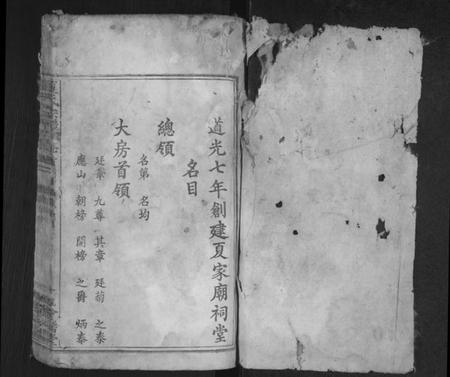 道光七年創建夏家廟祠堂
名目
總領
名第 名均
大房首領
廷章 九尊 其章 廷菊 之泰
應山 朝榜 開榜 之爵 炳泰